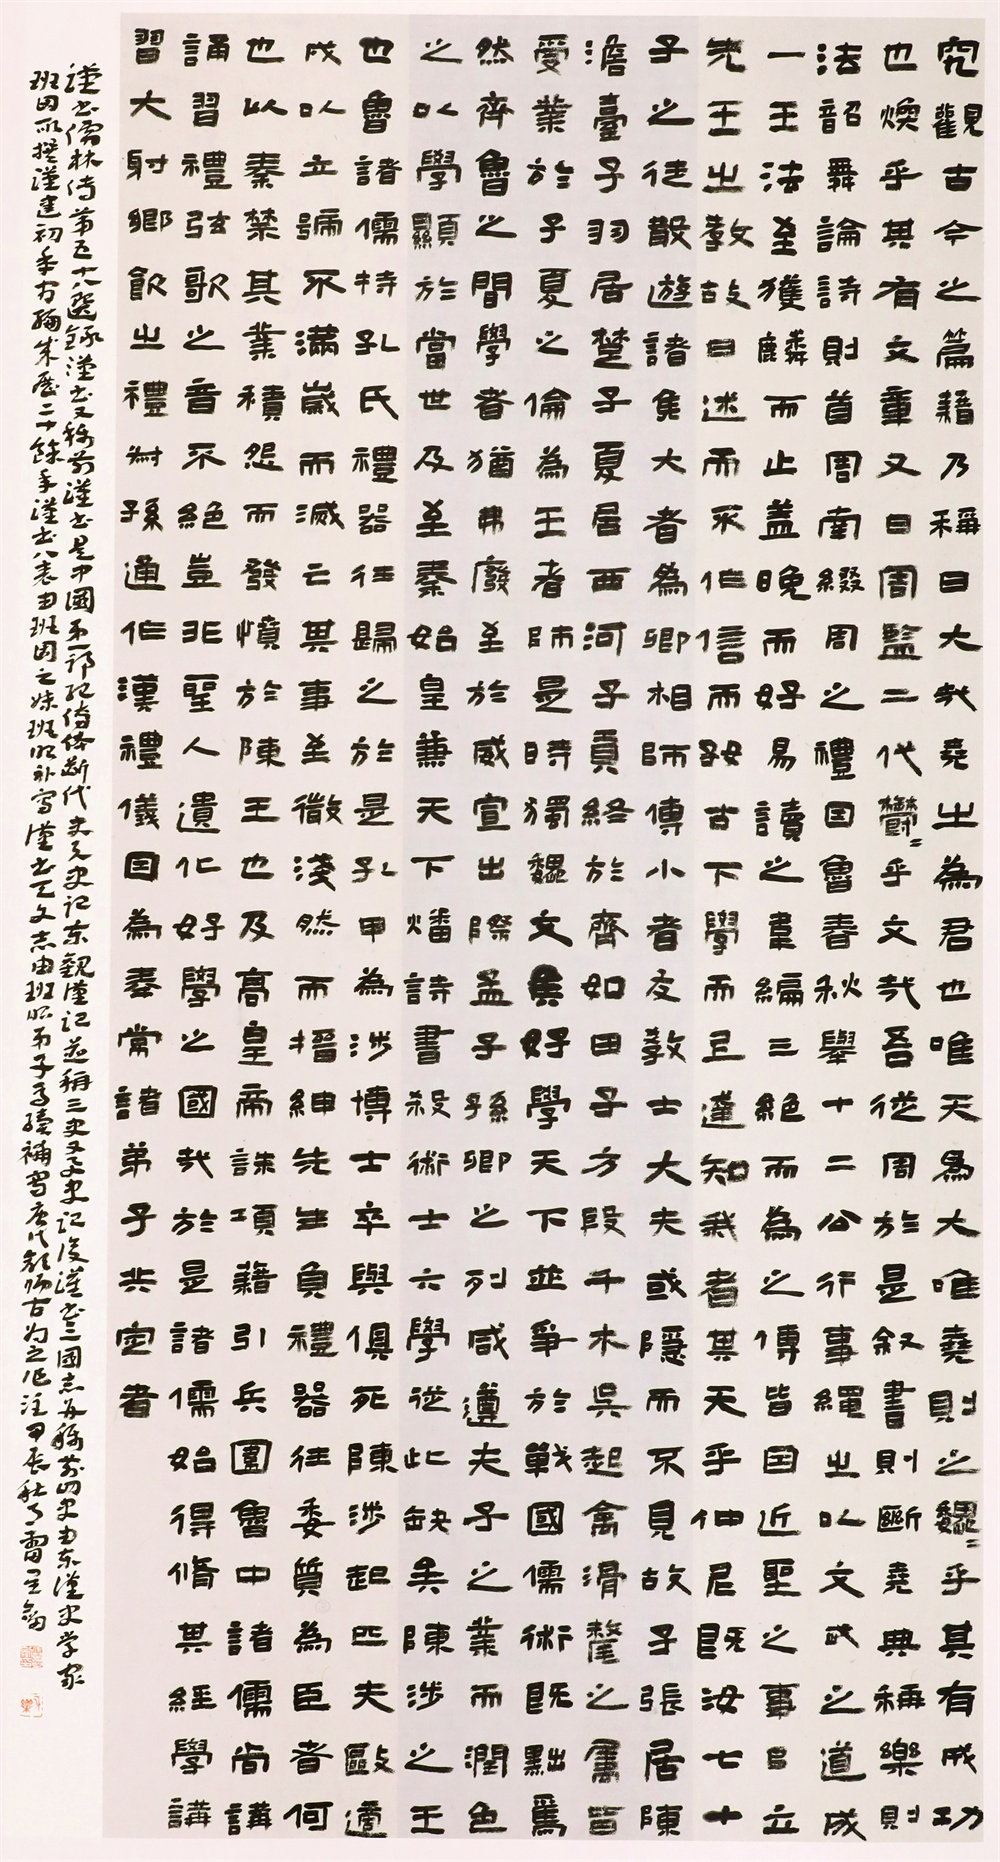 究觀古今之篇籍乃稱曰大哉堯之為君也唯天為大唯堯則之魏=乎其有成功
也煥乎其有文章又曰周監二代鬱=乎文哉吾從周於是敘書則斷堯典稱樂則
法韶舞論詩則首周南綴周之禮因魯春秋舉十二公行事繩之以文武之道成
一王法至獲麟而止蓋晚而好易讀之韋編三絕而為之傳皆因近聖之事㠯立
先王之教故曰述而不作信而好古下學而上達知我者其天乎仲尼既沒七十
子之徒散遊諸侯大者為卿相師傅小者友教士大夫或隱而不見故子張居陳
澹臺子羽居楚子夏居西河子貢終於齊如田子方段干木吳起禽滑氂之屬皆
受業於子夏之倫為王者師是時獨魏文侯好學天下並爭於戰國儒術既黜焉
然齊魯之間學者猶弗廢至於威宣之際孟子孫卿之列咸遵夫子之業而潤色
之以學顯於當世及至秦始皇兼天下燔詩書殺術士六學從此缺矣陳涉之王
也魯諸儒持孔氏禮器往歸之於是孔甲為涉博士卒與俱死陳涉起匹夫敺適
戍以立號不滿歲而滅亡其事至微淺然而搢紳先生負禮器往委質為臣者何
也以秦禁其業積怨而發憤於陳王也及高皇帝誅項籍引兵圍魯中諸儒尚講
誦習禮弦歌之音不絕豈非聖人遺化好學之國哉於是諸儒始得脩其經學講
習大射鄉飲之禮叔孫通作漢禮儀因為奉常諸弟子共定者
謹书儒林传第五十八選録漢书又稱前漢书是中國第一部紀传体斷代史与史记东觀漢記並稱三史又与史記後漢书三國志并稱前四史由东漢史学家
班固所撰漢建初年方编成歷二十餘年漢书八表由班固之妹班昭补寫漢书天文志由班昭弟子马續補寫唐代顏師古为之作注甲辰秋月雷